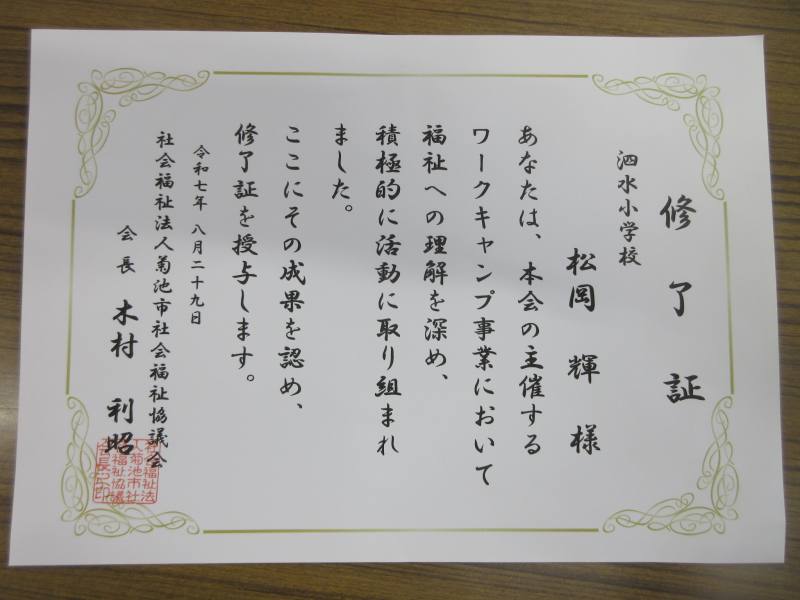 修了証
泗水小学校
松岡 輝 様
あなたは、本会の主催する
ワークキャンプ事業において
福祉への理解を深め、
積極的に活動に取り組まれ
ました。
ここにその成果を認め、
修了証を授与します。
令和七年 八月二十九日
社会福祉法人菊池市社会福祉協議会
会長 木村 利昭